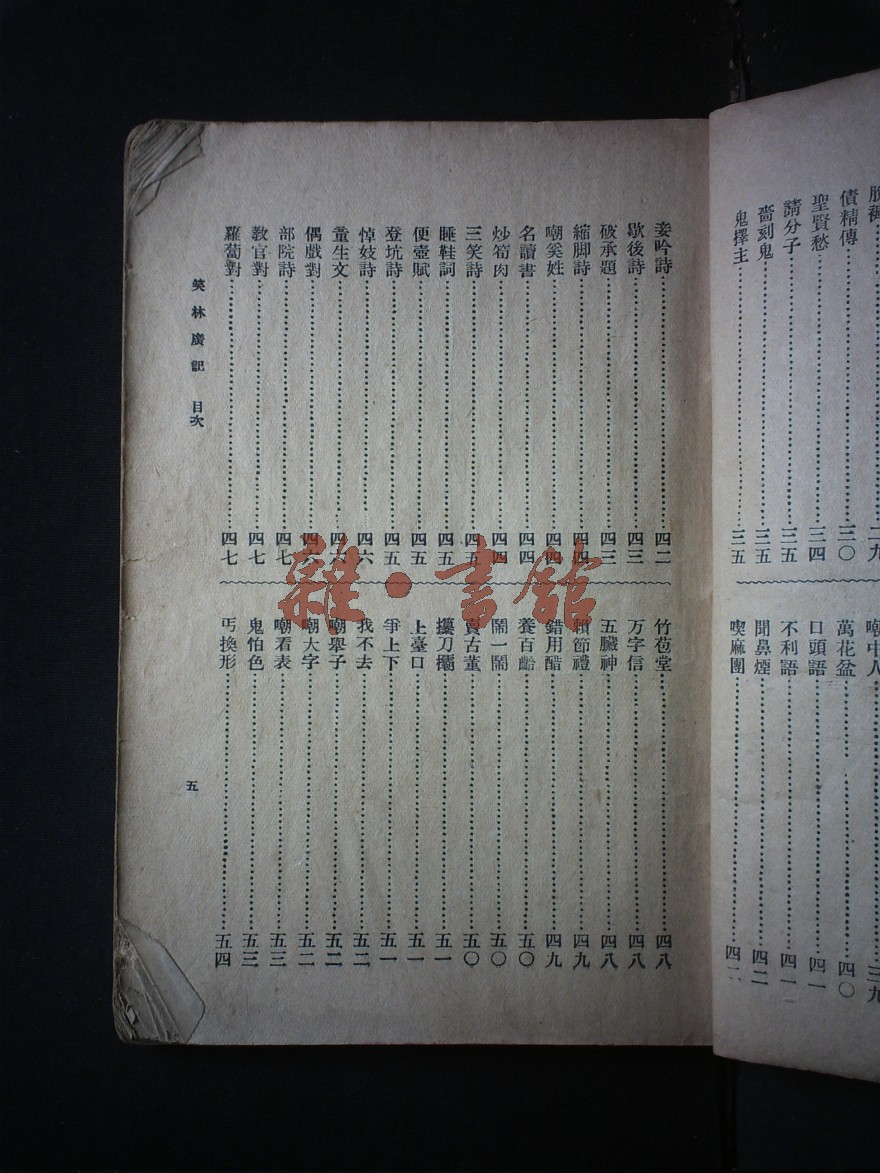 債精傳……三〇
聖賢愁……三四
請分子……三五
嗇刻鬼……三五
鬼擇主……三五
萬花盆……四〇
口頭語……四一
不利語……四一
聞鼻煙……四二
喫麻團……四二
妾吟詩……四二
歇後詩……四三
破承題……四三
縮脚詩……四四
嘲奚姓……四四
名讀書……四四
炒筍肉……四四
三笑詩……四五
睡鞋詞……四五
便壺賦……四五
登坑詩……四五
悼妓詩……四六
童生文……四六
偶戲對……四六
部院詩……四七
教官對……四七
蘿蔔對……四七
竹苞堂……四八
万字信……四八
五臟神……四八
賴節禮……四九
錯用醋……四九
養百齡……五〇
鬧一鬧……五〇
賣古董……五〇
攥刀欛……五一
上臺口……五一
爭上下……五一
我不去……五二
嘲舉子……五二
嘲大字……五二
嘲看表……五三
鬼怕色……五三
丐換形……五四
笑林廣記 目次
五
雜·書館